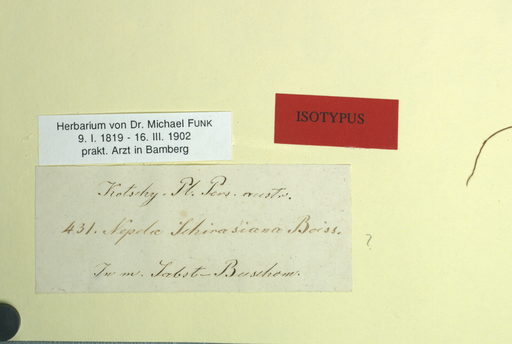 ISOTYPUS
Herbarium von Dr. Michael FUNK
9. I. 1819 - 16. III. 1902
prakt. Arzt in Bamberg
Kotschy. Pl. Pers. austr.
431. Nepeta Schirasiana Boiss.
?
In m. Sabst-Buschom.